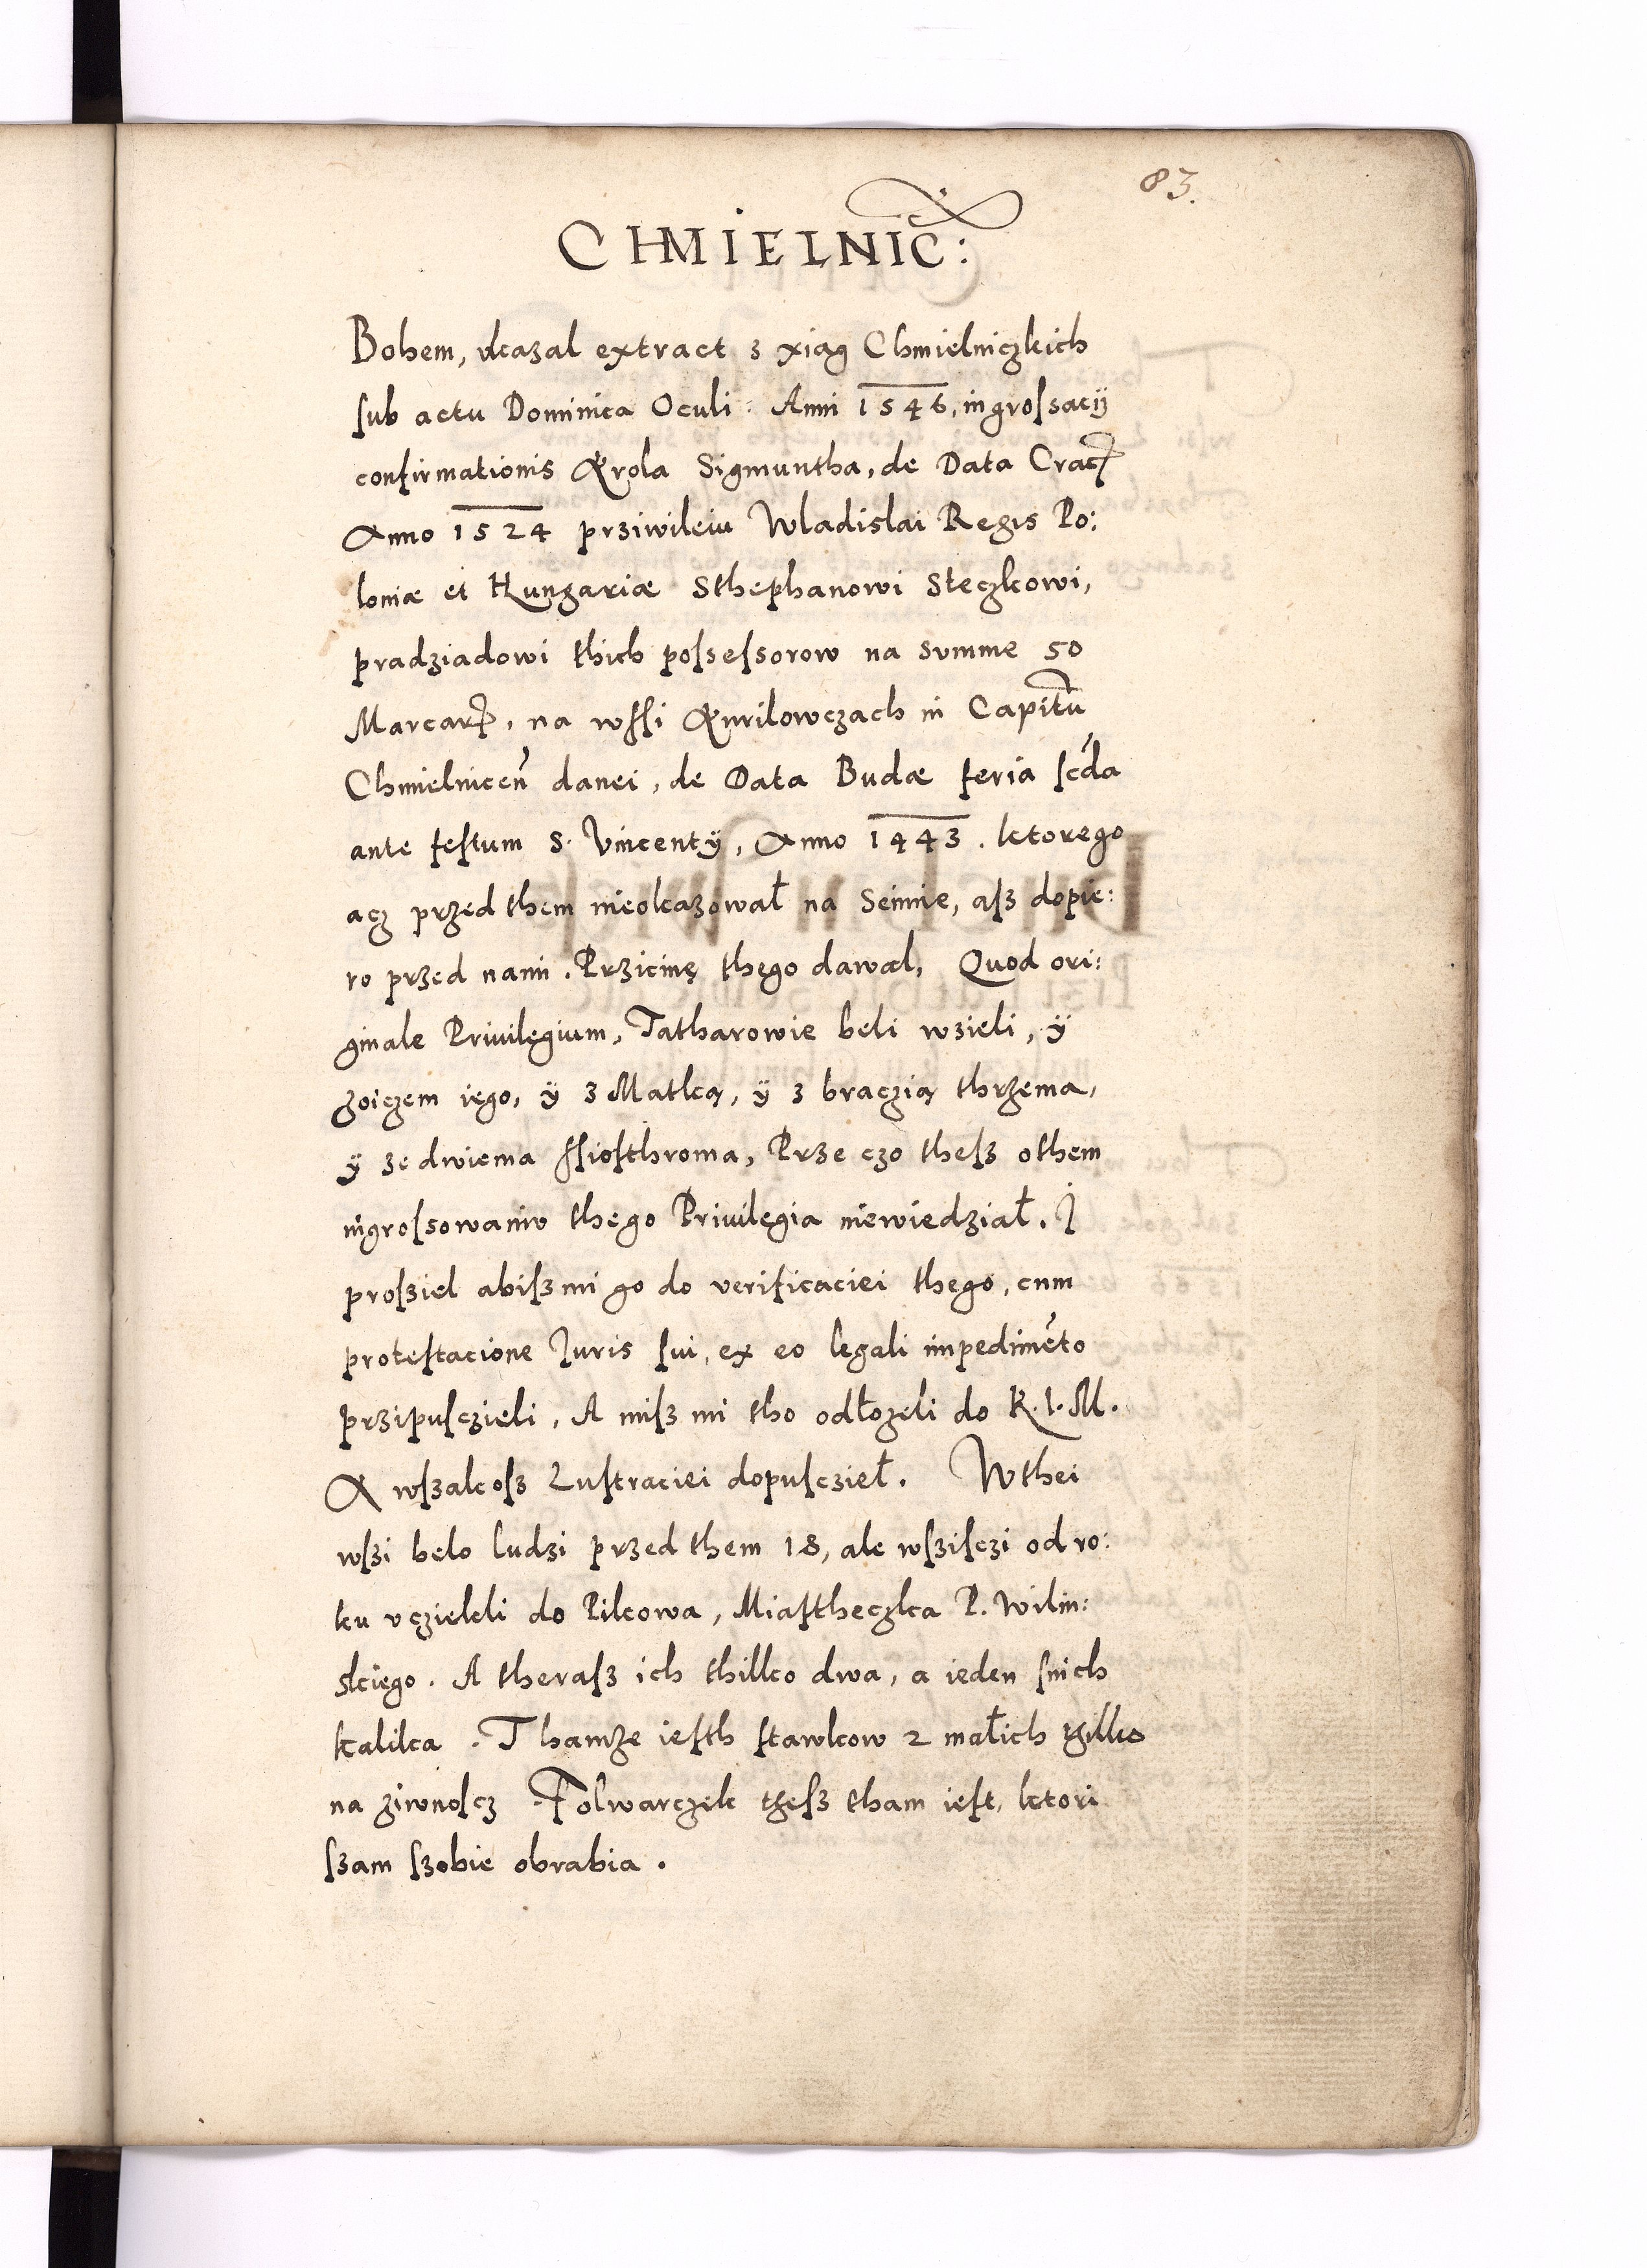 83.
CHMIELNIC̄:
Bohem, vkazal extract z xiąg Chmielniczkich
ſub actu Dominica Oculi: Anni 1546, ingroſsacÿ
confirmationis Krola Sigmuntha, de Data Cracꝭ
Anno 1524 prziwileiu Wladislai Regis Po:
loniæ et Hungariæ Sthephanowi Steczkowi,
pradziadowi thich poſseſsorow na summe 50
Marcarꝭ, na wſſi Kurilowczach in Capitū
Chmielnicen̄ danei, de Data Budæ feria ſcd̄a
ante feſtum S. Vincentÿ, Anno 1443. ktorego
acz przed them nieokazował na Seimie, aſz dopie:
ro przed nami. Prziczinę thego dawal, Quod ori:
ginale Privilegium, Tatharowie beli wzieli, ÿ
zoiczem iego, ÿ z Matką, ÿ z braczią thrzema,
ÿ ze dwiema ſſioſthroma, Prze czo theſz othem
ingroſsowaniv thego Privilegia niewiedział. I
proſziel abiſzmi go do verificaciei thego, cum
proteſtacione Iuris ſui, ex eo legali impedimēto
przipuſczieli, A miſz mi tho odłozeli do K. I. M.
A wſzakoſz Luſtraciei dopuſcził. Wthei
wſzi belo ludzi przed them 18, ale wſziſczi od ro:
ku vcziekli do Pilcowa, Miaſtheczka P. Wilin:
skiego. A theraſz ich thilko dwa, a ieden ſnich
kalika. Thamze ieſth ſtawkow 2 małich thilko
na ziwnoſcz. Folwarczek theſz tham ieſt, ktori
ſzam ſzobie obrabia.